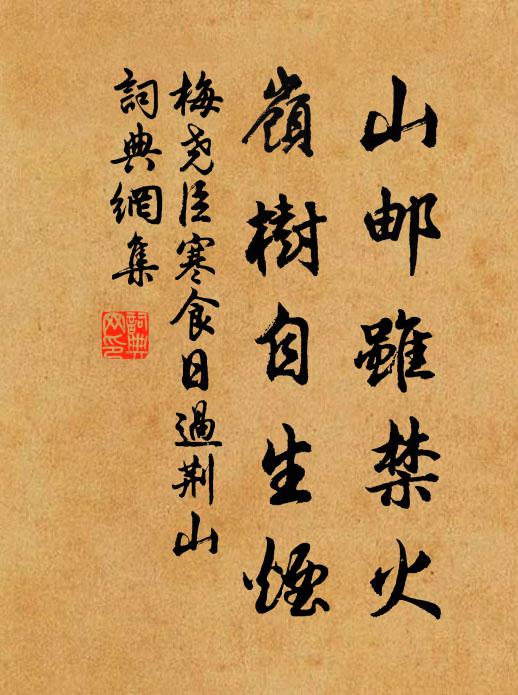 山邮雖禁火
嶺樹自生煙
梅尧臣寒食日過荆山
詞典網集
詞典網印